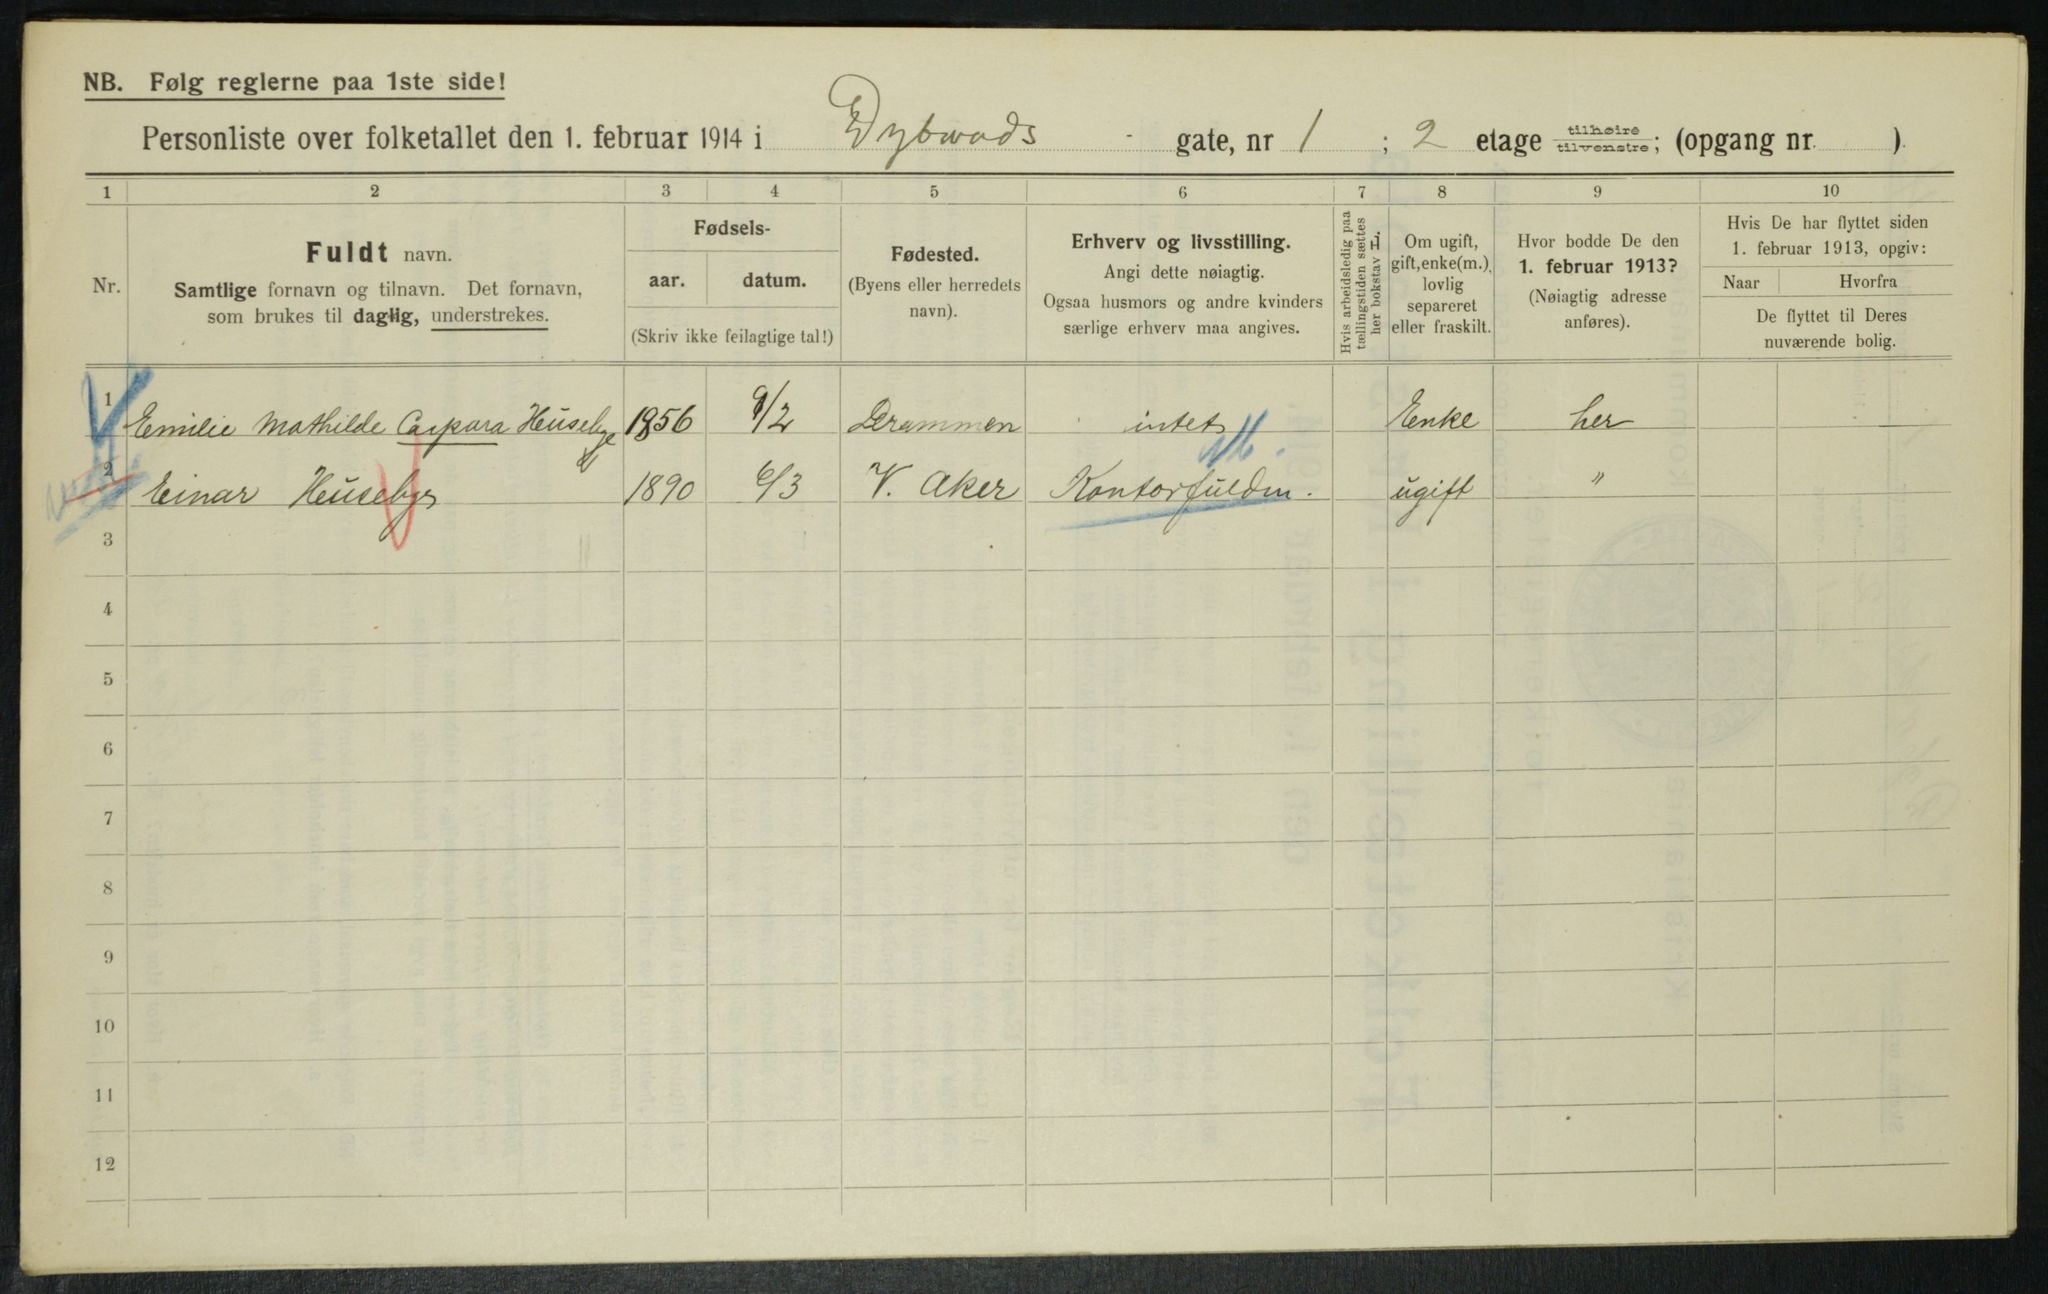 NB. Følg reglerne paa 1ste side!
Personliste over folketallet den 1. februar 1914 i Dybwads gate, nr 1 ; 2 etage tilhøire tilvenstre; (opgang nr. ).
1 2 3 4 5 6 7 8 9 10
Nr.
Fuldt navn.
Samtlige fornavn og tilnavn. Det fornavn,
som brukes til daglig, understrekes.
Fødsels-
aar. datum.
(Skriv ikke feilagtige tal!)
Fødested.
(Byens eller herredets
navn).
Erhverv og livsstilling.
Angi dette nøiagtig.
Ogsaa husmors og andre kvinders
særlige erhverv maa angives.
Hvis arbeidsledig paa
tællingstiden sættes
her bokstav L.
Om ugift,
gift, enke(m.),
lovlig
separeret
eller fraskilt.
Hvor bodde De den
1. februar 1913?
(Nøiagtig adresse
anføres).
Hvis De har flyttet siden
1. februar 1913, opgiv:
Naar Hvorfra
De flyttet til Deres
nuværende bolig.
1 Emilie Mathilde Caspara Heusebye 1856 9/2 Drammen intet Enke her
2 Einar Heusebye 1890 6/3 V. Aker Kontorfuldm. ugift "
3
4
5
6
7
8
9
10
11
12